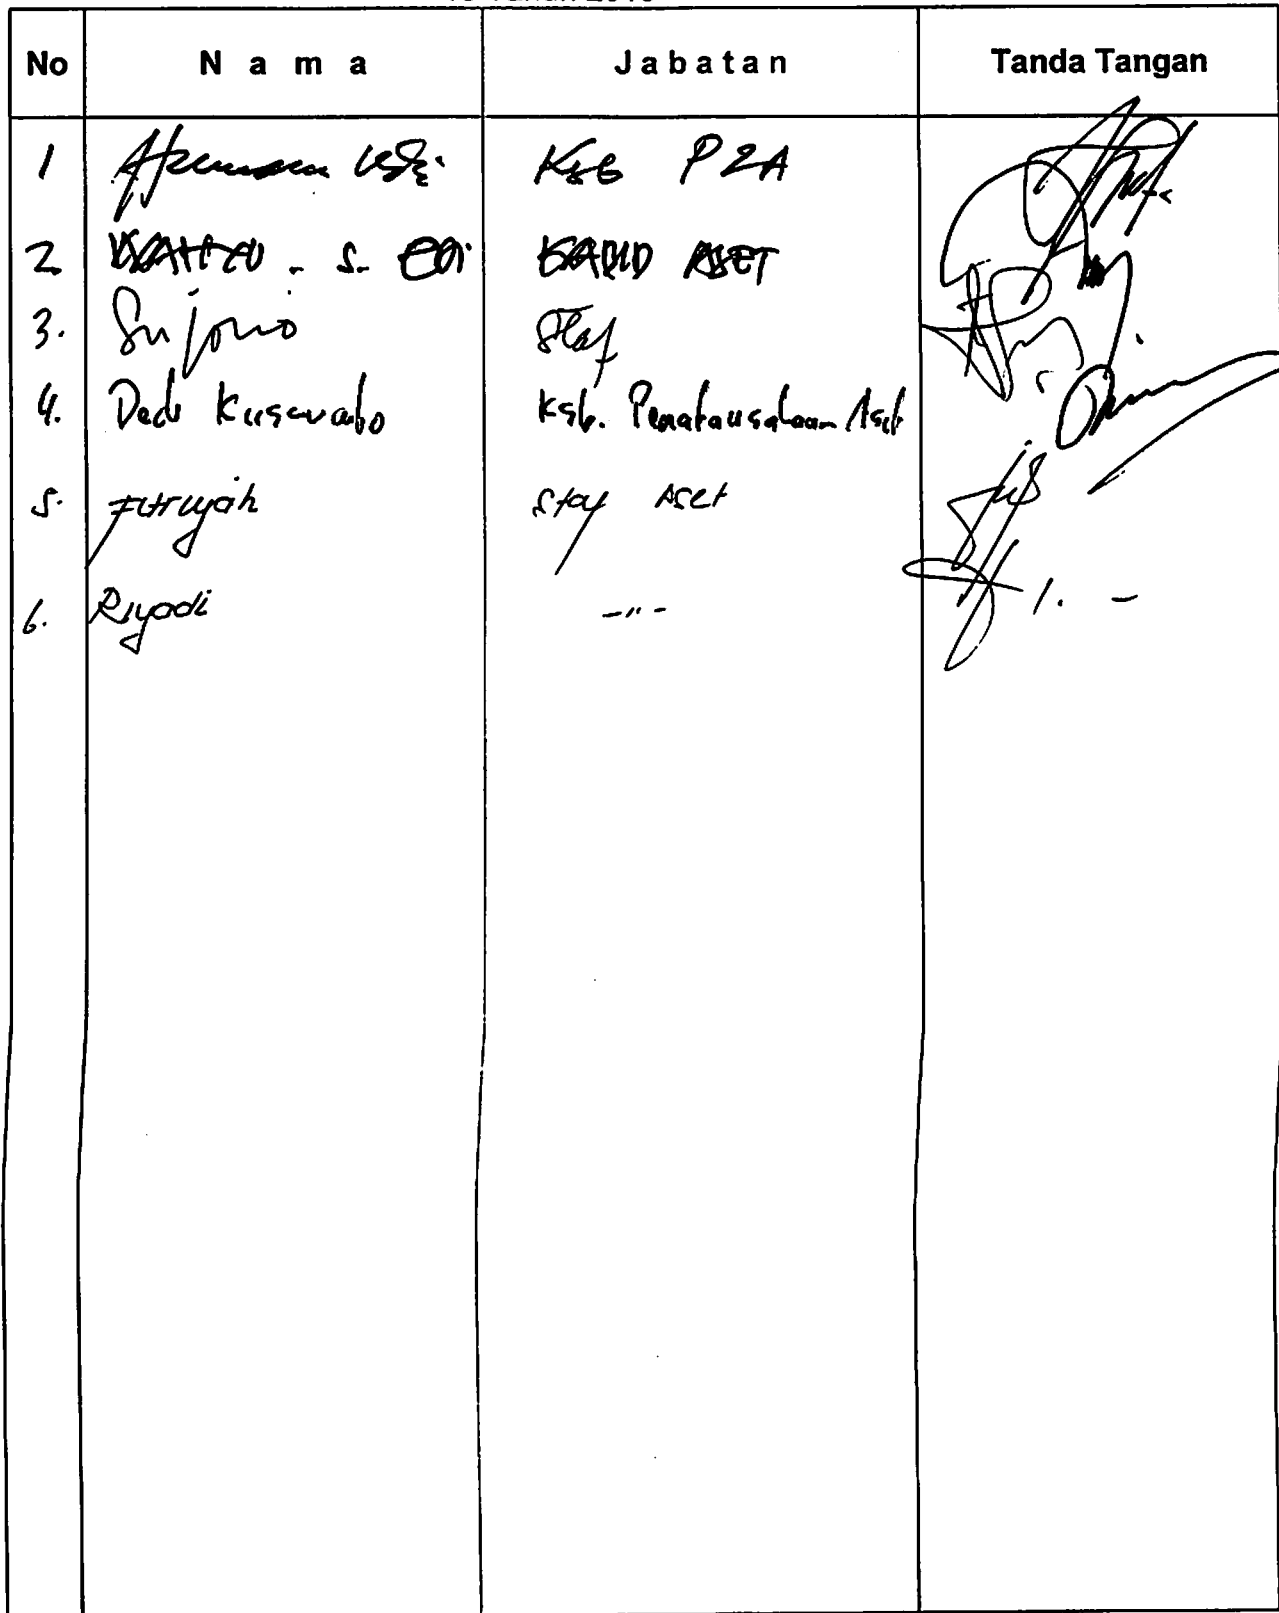 No N a m a J a b a t a n Tanda Tangan
1 Ksb P2A
2. S. KABID ASET
3. Sujono Staf
4. Dedi Kuswanto Ksb. Penatausahaan Aset
5. Fitriyah Staf Aset
6. Riyadi -"-